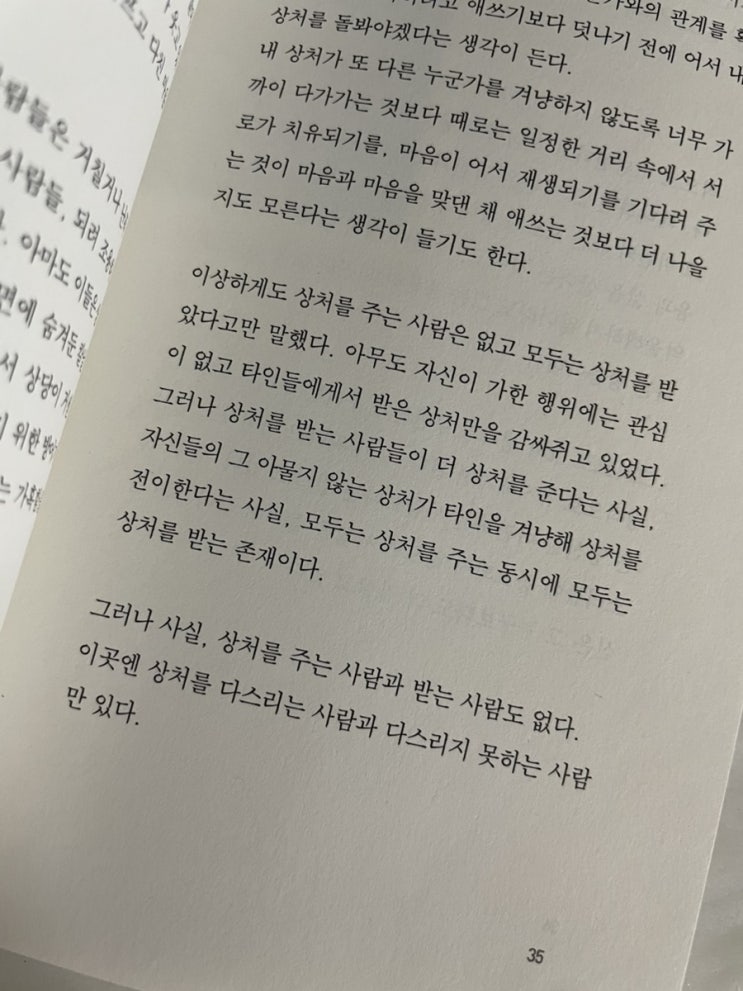 애쓰기보다 덧나기 전에 어서 내
상처를 돌봐야겠다는 생각이 든다.
내 상처가 또 다른 누군가를 겨냥하지 않도록 너무 가
까이 다가가는 것보다 때로는 일정한 거리 속에서 서
로가 치유되기를, 마음이 어서 재생되기를 기다려 주
는 것이 마음과 마음을 맞댄 채 애쓰는 것보다 더 나을
지도 모른다는 생각이 들기도 한다.
이상하게도 상처를 주는 사람은 없고 모두는 상처를 받
았다고만 말했다. 아무도 자신이 가한 행위에는 관심
이 없고 타인들에게서 받은 상처만을 감싸쥐고 있었다.
그러나 상처를 받는 사람들이 더 상처를 준다는 사실,
자신들의 그 아물지 않는 상처가 타인을 겨냥해 상처를
전이한다는 사실, 모두는 상처를 주는 동시에 모두는
상처를 받는 존재이다.
그러나 사실, 상처를 주는 사람과 받는 사람도 없다.
이곳엔 상처를 다스리는 사람과 다스리지 못하는 사람
만 있다.
35